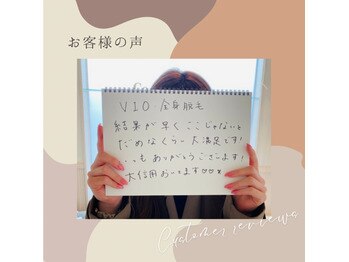 お客様の声
VIO・全身脱毛
結果が早くここじゃないと
だめなくらい大満足です!
いつもありがとうございます!
大信用おいてます♡♡
Customer reviews